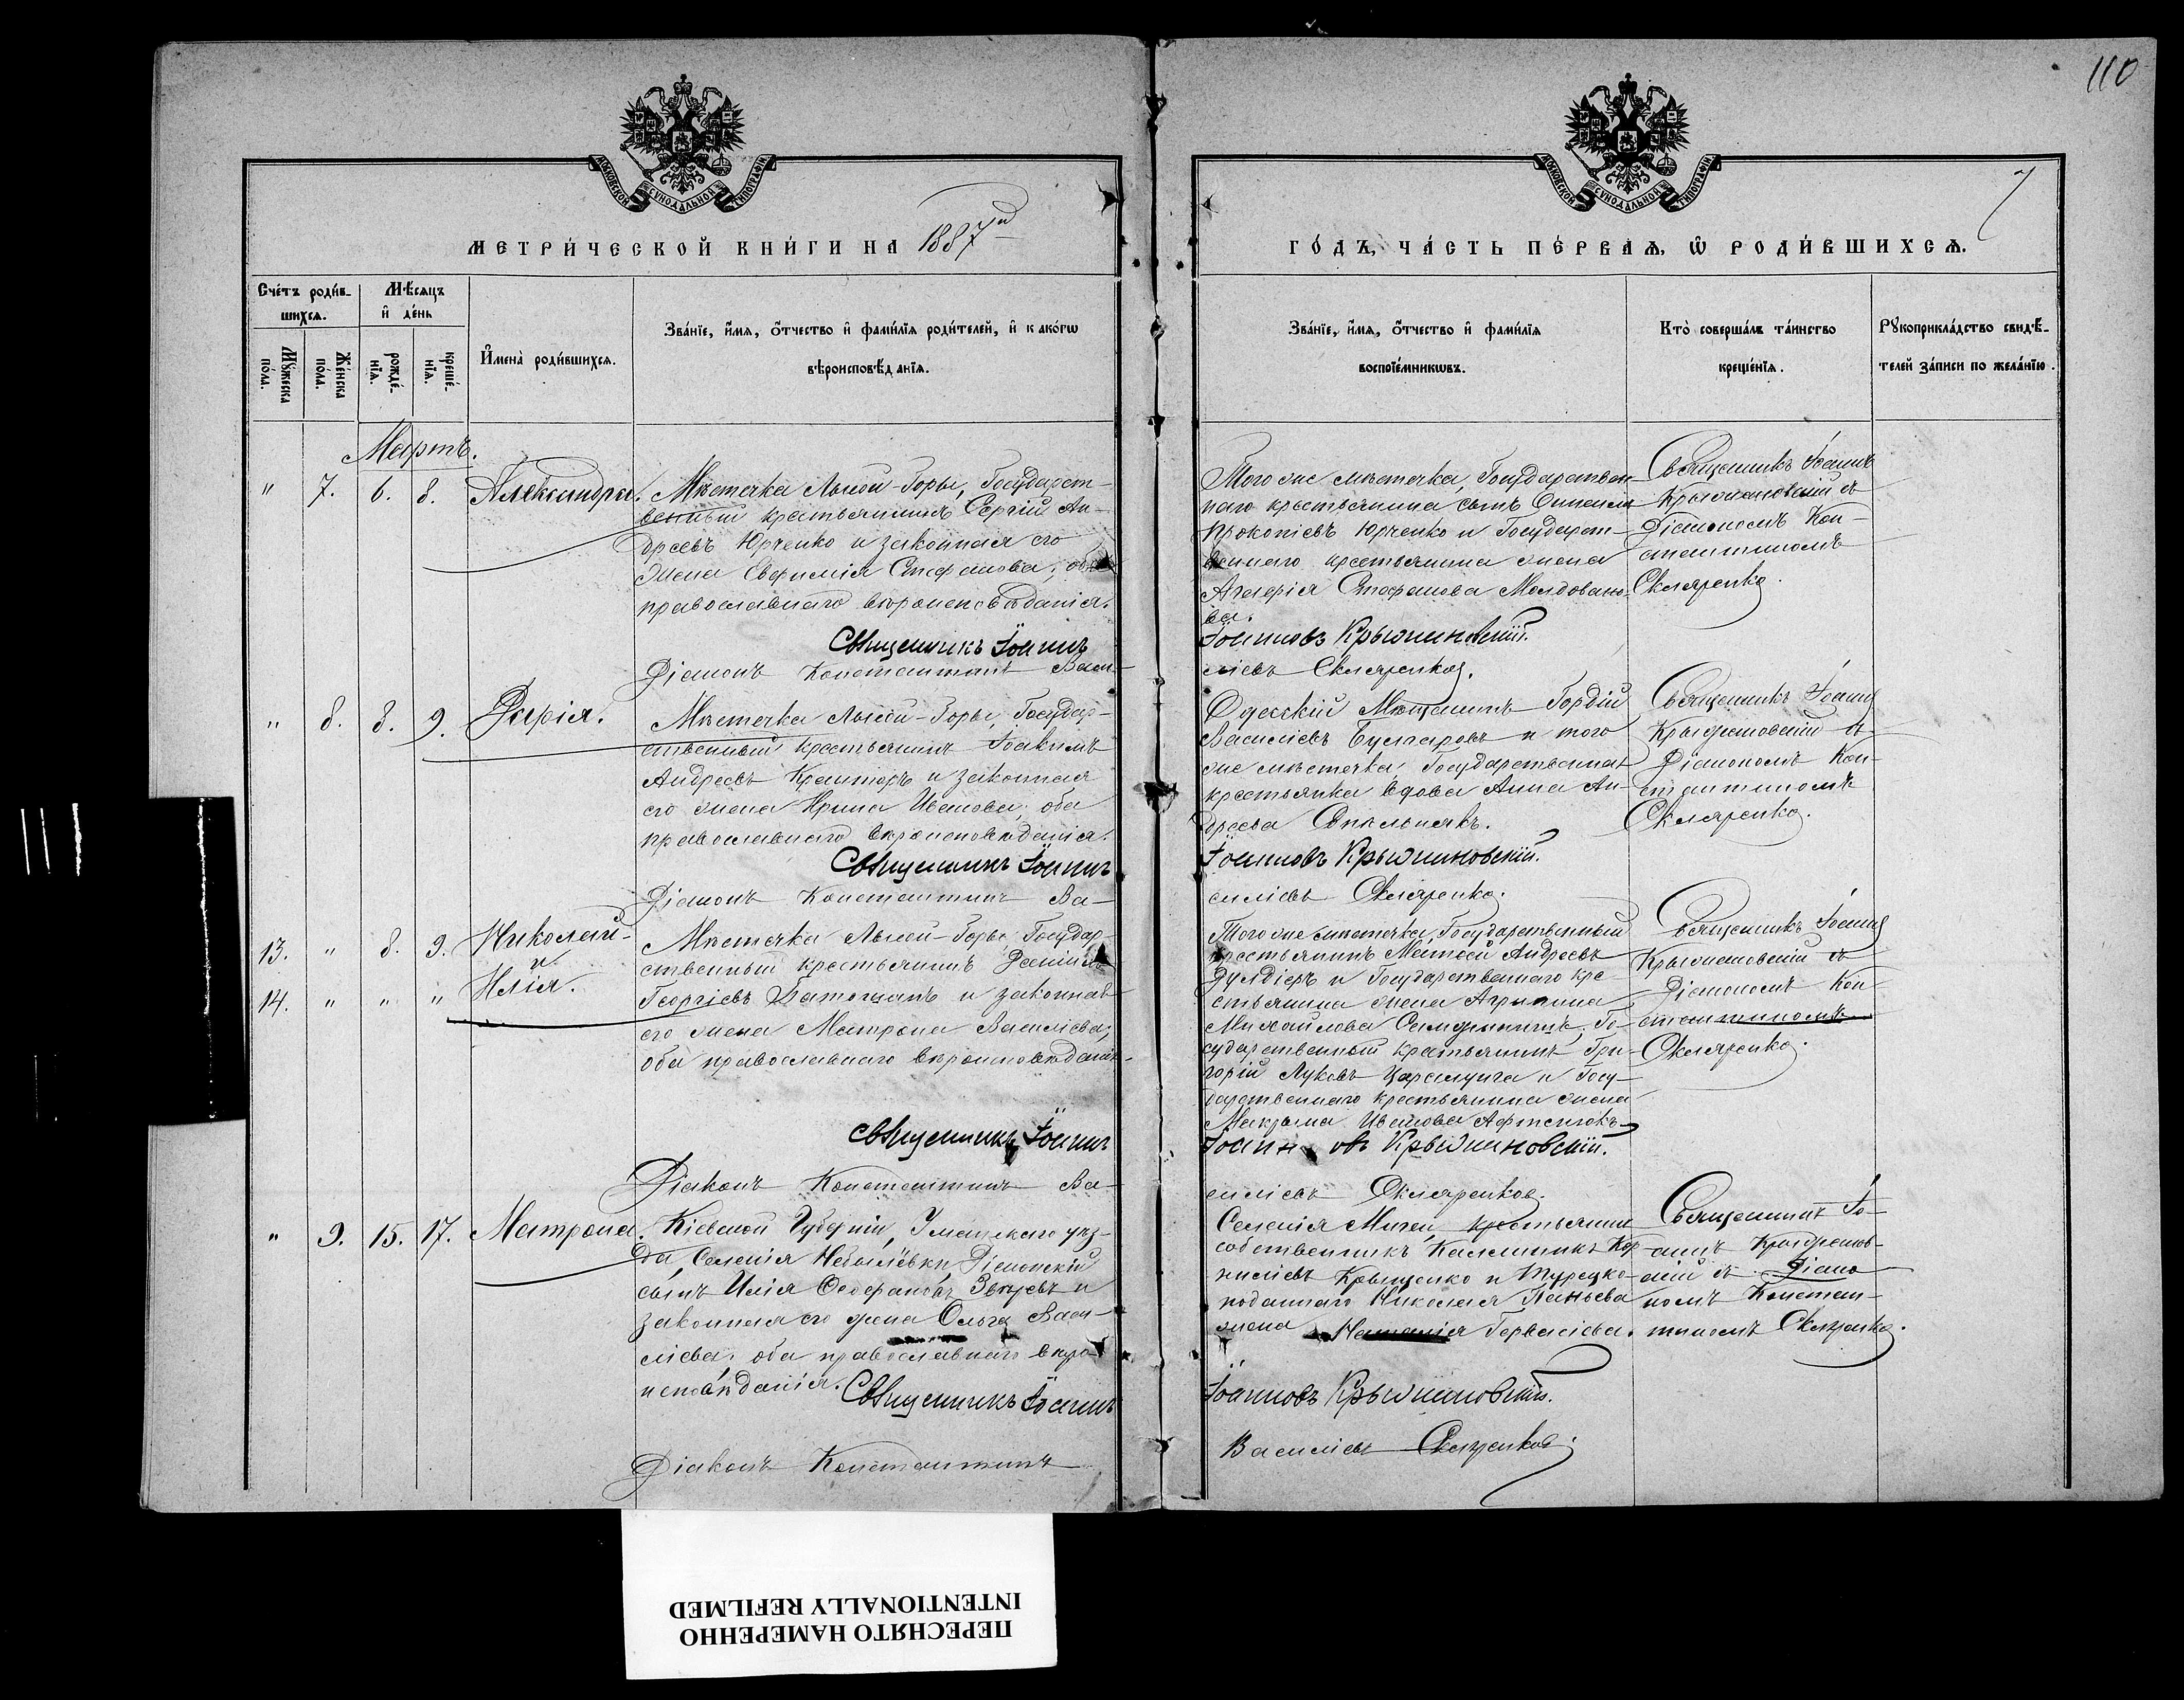 110
МОСКОВСКОЙ СУНОДАЛЬНОЙ ТИПОГРАФІИ
МОСКОВСКОЙ СУНОДАЛЬНОЙ ТИПОГРАФІИ
7
МЕТРИ́ЧЕСКОЙ КНИ́ГИ НА 1887й
ГО́ДЪ, ЧА́СТЬ ПЕ́РВАѦ, Ѡ҆ РОДИ́ВШИХСѦ.
Сче́тъ роди́в-
шихсѧ.
Мꙋ́жеска по́ла.
Же́нска по́ла.
Мѣ́сѧцъ
и҆ де́нь
рожде́-
нїѧ.
креще́-
нїѧ.
И҆мена̀ роди́вшихсѧ.
Зва́нїе, и҆́мѧ, ѻ҆́тчество и҆ фами́лїѧ роди́телей, и҆ како́гѡ
вѣроисповѣ́данїѧ.
Зва́нїе, и҆́мѧ, ѻ҆́тчество и҆ фами́лїѧ
воспрїе́мникѡвъ.
Кто̀ соверша́лъ та́инство
креще́нїѧ.
Рꙋкоприкла́дство свидѣ́-
телей за́писи по жела́нїю.
Мартъ.
" 7. 6. 8. Александра.
Мѣстечка Лысой-Горы, Государст-
венный крестьянинъ Сергій Ан-
дреевъ Юрченко и законная его
жена Евфимія Стефанова, оба
православнаго вѣроисповѣданія.
Священникъ Іоаннъ
Діаконъ Константинъ Васи-
Того же мѣстечка, Государствен-
наго крестьянина сынъ
Прокопіевъ Юрченко и Государст-
веннаго крестьянина жена
Агафія Стефанова Молдовано-
ва.
Іоанновъ Крыжановскій.
ліевъ Скляренков.
Священникъ Іоаннъ
Крыжановскій съ
Діакономъ Кон-
стантиномъ
Скляренко.
" 8. 8. 9. Дарія.
Мѣстечка Лысой-Горы, Государ-
ственный крестьянинъ Іоакимъ
Андреевъ и законная
его жена Ирина Иванова, оба
православнаго вѣроисповѣданія.
Священникъ Іоаннъ
Діаконъ Константинъ Ва-
Одесскій Мѣщанинъ Гордій
Василіевъ Булгаровъ и того
же мѣстечка, Государственная
крестьянка вдова Анна Ан-
дреева
Іоанновъ Крыжановскій.
силіевъ Скляренко.
Священникъ Іоаннъ
Крыжановскій съ
Діакономъ Кон-
стантиномъ
Скляренко.
13. " 8. 9. Николай
и
14. " " " Илія.
Мѣстечка Лысой-Горы Государ-
ственный крестьянинъ
Георгіевъ и законная
его жена Матрона Василіева,
оба православнаго вѣроисповѣданія.
Священникъ Іоаннъ
Діаконъ Константинъ Ва-
Того же мѣстечка, Государственный
крестьянинъ Матфей Андреевъ
и Государственнаго кре-
стьянина жена Агрипина
Михайлова Го-
сударственный крестьянинъ Гри-
горій Луковъ и Госу-
дарственнаго крестьянина жена
Макрина Иванова
Іоанновъ Крыжановскій.
силіевъ Скляренков.
Священникъ Іоаннъ
Крыжановскій съ
Діакономъ Кон-
стантиномъ
Скляренко.
" 9. 15. 17. Матрона.
Кіевской Губерніи, Уманскаго уѣз-
да, Селенія Небылевки, Діаконскій
сынъ Илія Феофановъ Звѣревъ и
законная его жена Ольга Васи-
ліева, оба православнаго вѣро-
исповѣданія. Священникъ Іоаннъ
Діаконъ Константинъ
Селенія Мигеи, крестьянинъ
собственникъ Калиникъ Кор-
ниліевъ Крыщенко и Турецко-
подданнаго Николая
жена Наталія Гервасіева.
Іоанновъ Крыжановскій.
Василіевъ Скляренков.
Священникъ Іо-
аннъ Крыжанов-
скій съ Діако-
номъ Констан-
тиномъ Скляренко.
ПЕРЕСНЯТО НАМЕРЕННО
INTENTIONALLY REFILMED